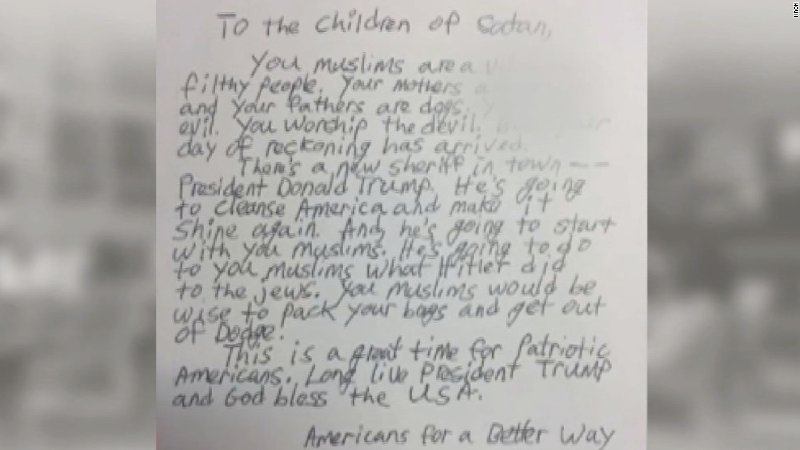 To the Children of Satan,
You muslims are a
filthy people. Your mothers
and your fathers are dogs.
evil. You worship the devil.
day of reckoning has arrived.
There's a new sheriff in town --
President Donald Trump. He's going
to cleanse America and make it
shine again. And he's going to start
with you muslims. He's going to do
to you muslims what Hitler did
to the jews. You muslims would be
wise to pack your bags and get out
of Dodge.
This is a great time for Patriotic
Americans. Long live President Trump
and God bless the USA.
Americans for a Better Way